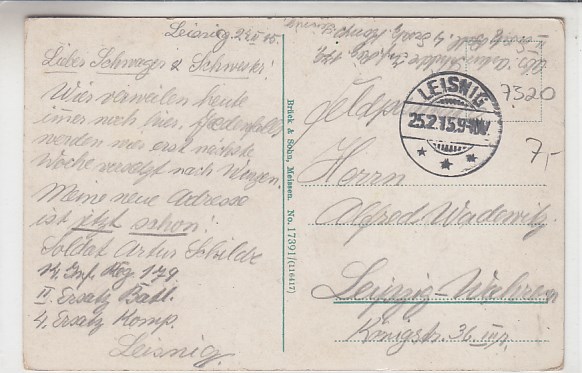 Leisnig 24.II.15.
Lieber Schwager & Schwester!
Wir verweilen heute
imer noch hier, Jedenfalls
werden wir erst nächste
Woche versetzt nach
Meine neue Adresse
ist jetzt schon!
Soldat Artur Schilde
Inf. Reg. 179
II. Ersatz Batl.
4. Ersatz Komp.
Leisnig.
Brück & Sohn, Meissen. No. 17391/(116417)
Inf. Reg. 179
II. Ersatz Batl. 4. Ersatz Komp.
Leisnig
LEISNIG
25.2.15.9-10V.
7320
7,-
Feldpost
Herrn
Alfred Wadewitz
Leipzig-Wahren
Königstr. 36 III r.